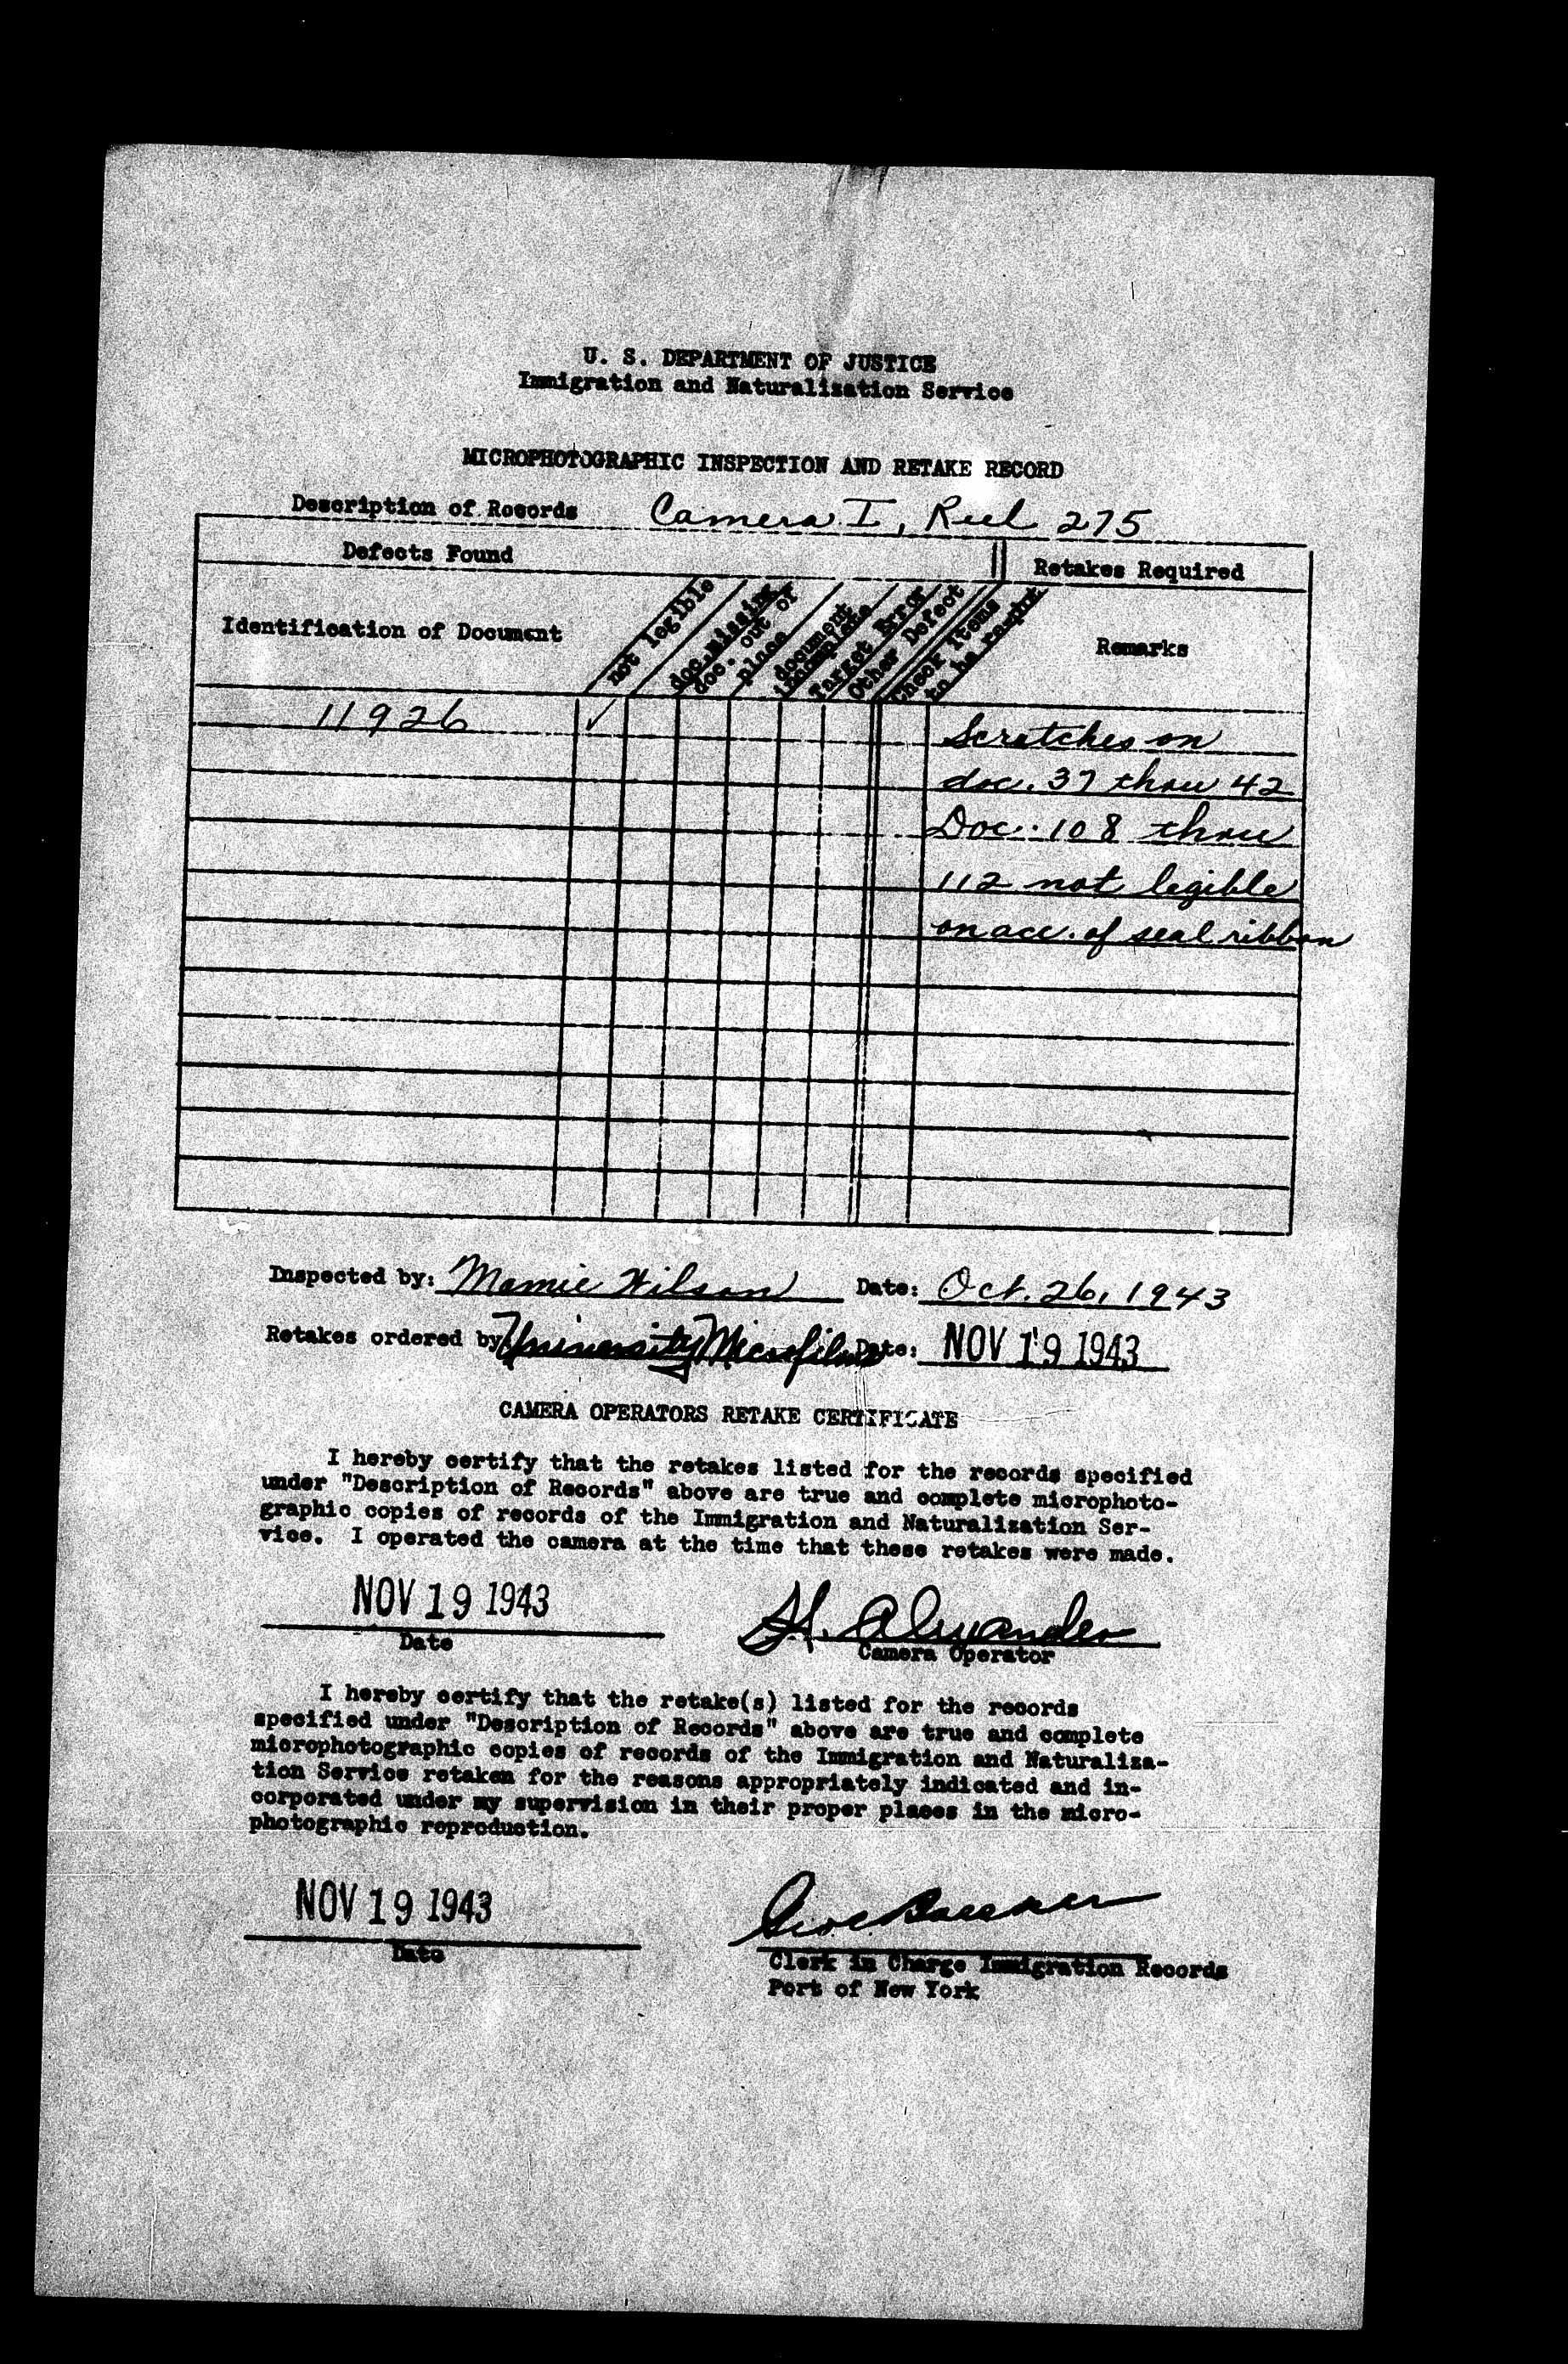 U. S. DEPARTMENT OF JUSTICE
Immigration and Naturalization Service
MICROPHOTOGRAPHIC INSPECTION AND RETAKE RECORD
Description of Records Camera I, Reel 275
Defects Found
Retakes Required
Identification of Document
not legible
doc. missing
doc. out of
place
document
incomplete
Target Error
Other Defect
Check items
to be
Remarks
11926 ✓ Scratches on
doc. 37 thru 42
Doc. 108 thru
112 not legible
on acc. of seal ribbon
Inspected by: Mamie Wilson Date: Oct. 26, 1943
Retakes ordered by University Microfilms Date: NOV 19 1943
CAMERA OPERATORS RETAKE CERTIFICATE
I hereby certify that the retakes listed for the records specified
under "Description of Records" above are true and complete microphoto-
graphic copies of records of the Immigration and Naturalization Ser-
vice. I operated the camera at the time that these retakes were made.
NOV 19 1943
Date
H. Alexander
Camera Operator
I hereby certify that the retake(s) listed for the records
specified under "Description of Records" above are true and complete
microphotographic copies of records of the Immigration and Naturaliza-
tion Service retaken for the reasons appropriately indicated and in-
corporated under my supervision in their proper places in the micro-
photographic reproduction.
NOV 19 1943
Date
Clerk in Charge Immigration Records
Port of New York